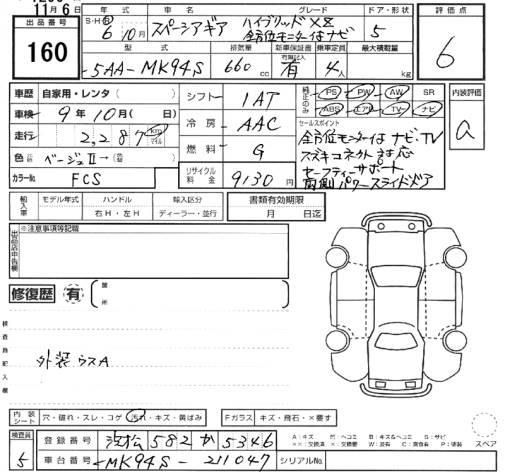 11月6日
出品番号
160
年式 車名 グレード ドア・形状
S・H・R 6年10月 スペーシアギア ハイブリッドXZ 全方位モニター付ナビ 5
型式 排気量 新車保証書 乗車定員 最大積載量
5AA-MK94S 660cc 有 4人 kg
評価点
6
車歴 自家用・レンタ( )
車検 9年10月( 日)
走行 2,287 km マイル
色 ベージュII→(替)
カラーNo. FCS
シフト 1AT
冷房 AAC
燃料 G
リサイクル料金 9130円
純正のみ PS PW AW SR
ABS エアB TV ナビ
セールスポイント
全方位モニター付ナビ・TV
スズキコネクト対応
セーフティーサポート
両側パワースライドドア
内装評価
a
輸入車 モデル年式 ハンドル 輸入区分
右H・左H ディーラー・並行
書類有効期限
月 日迄
出品店申告欄 ※注意事項等記載
修復歴 有 箇所
検査員記入欄
外装ウスA
内装シート 穴・破れ・スレ・コゲ 汚れ・キズ・黄ばみ
Fガラス キズ・飛石・×要す
A:キズ U:ヘコミ B:キズ&ヘコミ S:サビ
××:交換済 ×:交換要 W:波有 C:腐食有 P:塗装
スペア
検査員 5
登録番号 浜松 582 か 5346
車台番号 MK94S-211047
シリアルNo.